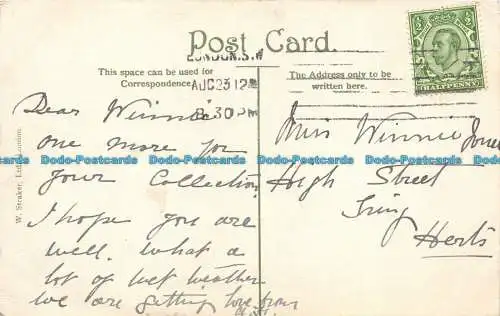 Post Card.
LONDON.S.W
AUG 23 12
8.30PM
HALFPENNY
This space can be used for
Correspondence
The Address only to be
written here.
Dear Winnie
one more for
your Collection
I hope you are
well. what a
lot of wet weather
we are getting love from
Miss Winnie Jones
High Street
Tring
Herts
W. Straker, Ltd. London.
Dodo-Postcards Dodo-Postcards Dodo-Postcards Dodo-Postcards
Dodo-Postcards Dodo-Postcards Dodo-Postcards Dodo-Postcards